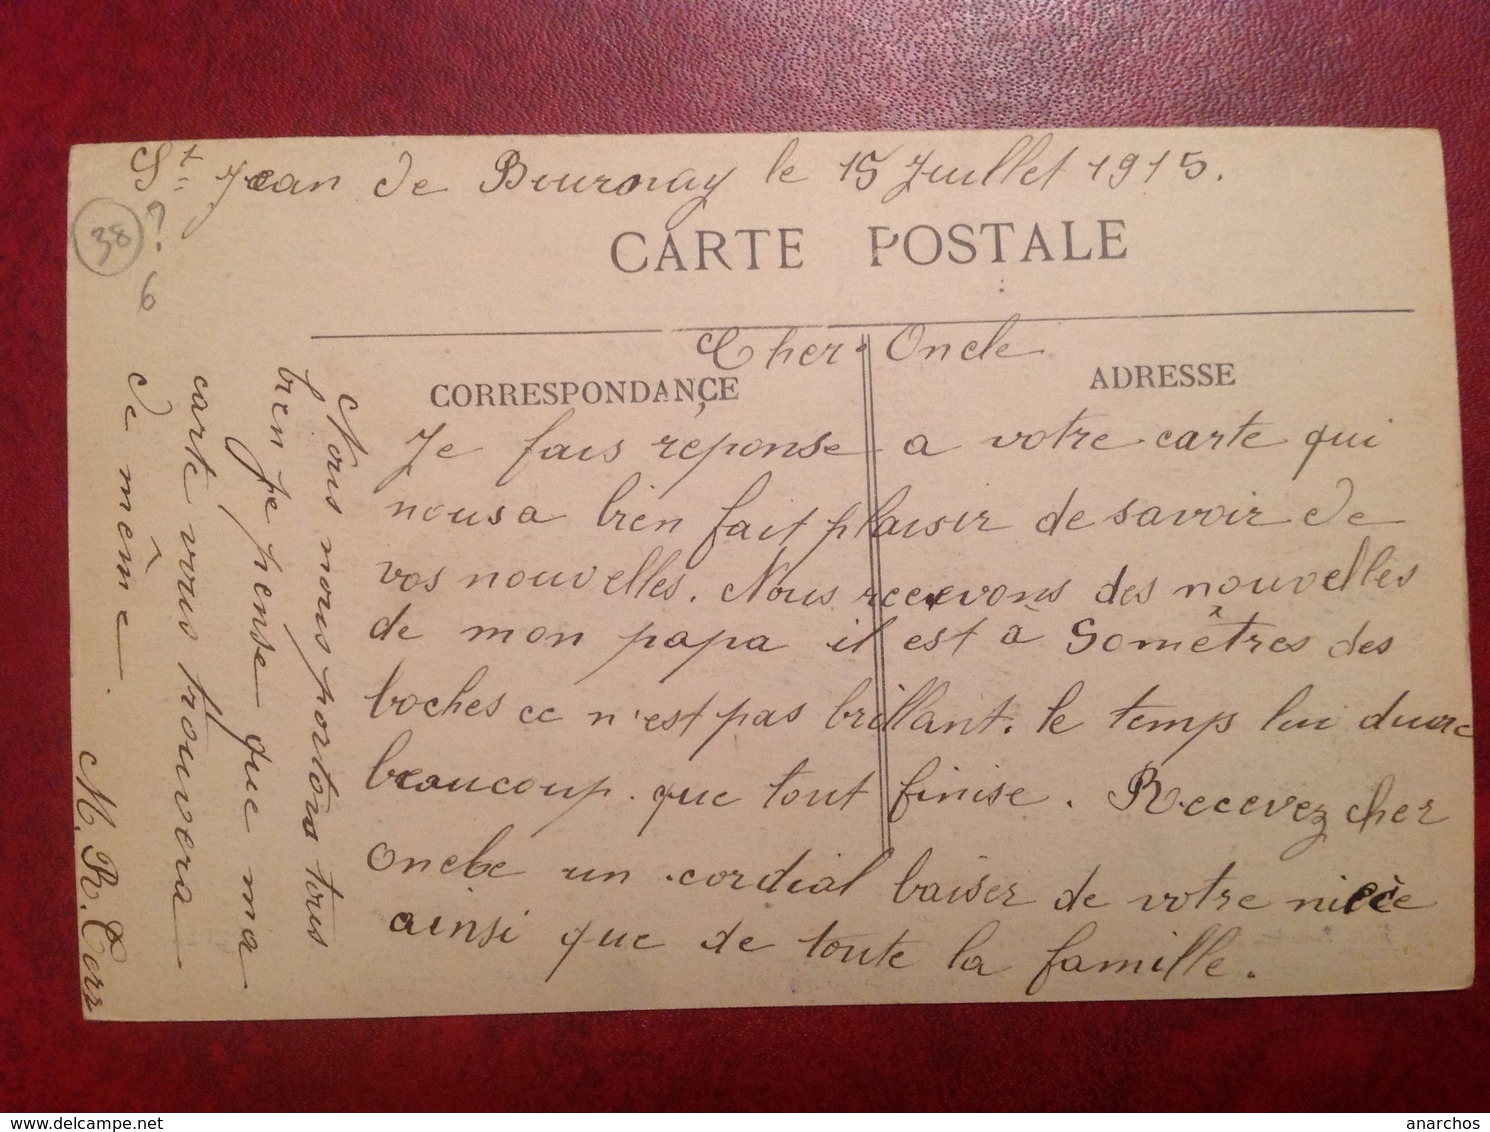 St Jean de Bournay le 15 Juillet 1915.
38
?
6
CARTE POSTALE
Cher Oncle
CORRESPONDANCE
ADRESSE
Je fais reponse a votre carte qui
nous a bien fait plaisir de savoir de
vos nouvelles. Nous recevons des nouvelles
de mon papa il est à 50 mêtres des
boches ce n'est pas brillant. le temps lui dure
beaucoup que tout finise. Recevez cher
oncle un cordial baiser de votre nièce
ainsi que de toute la famille.
Nous nous portons tous
bien je pense que ma
carte vous trouvera
de même.
M. R.
www.delcampe.net
anarchos